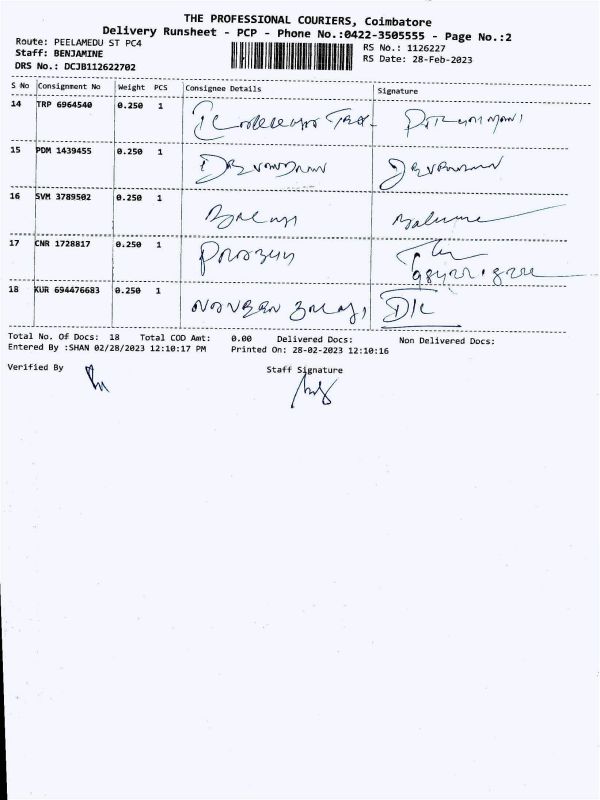 THE PROFESSIONAL COURIERS, Coimbatore
Delivery Runsheet - PCP - Phone No.:0422-3505555 - Page No.:2
Route: PEELAMEDU ST PC4
RS No.: 1126227
Staff: BENJAMINE
RS Date: 28-Feb-2023
DRS No.: DCJB112622702
S No Consignment No Weight PCS Consignee Details Signature
14 TRP 6964540 0.250 1
15 PDM 1439455 0.250 1
16 SVM 3789502 0.250 1 Balaji
17 CNR 1728817 0.250 1
18 KUR 694476683 0.250 1 Balaji
Total No. Of Docs: 18 Total COD Amt: 0.00 Delivered Docs: Non Delivered Docs:
Entered By :SHAN 02/28/2023 12:10:17 PM Printed On: 28-02-2023 12:10:16
Verified By Staff Signature